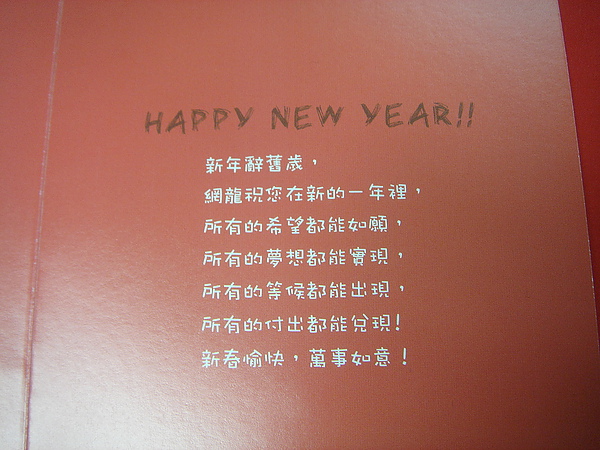 HAPPY NEW YEAR!!
新年辭舊歲，
網龍祝您在新的一年裡，
所有的希望都能如願，
所有的夢想都能實現，
所有的等候都能出現，
所有的付出都能兌現!
新春愉快，萬事如意！